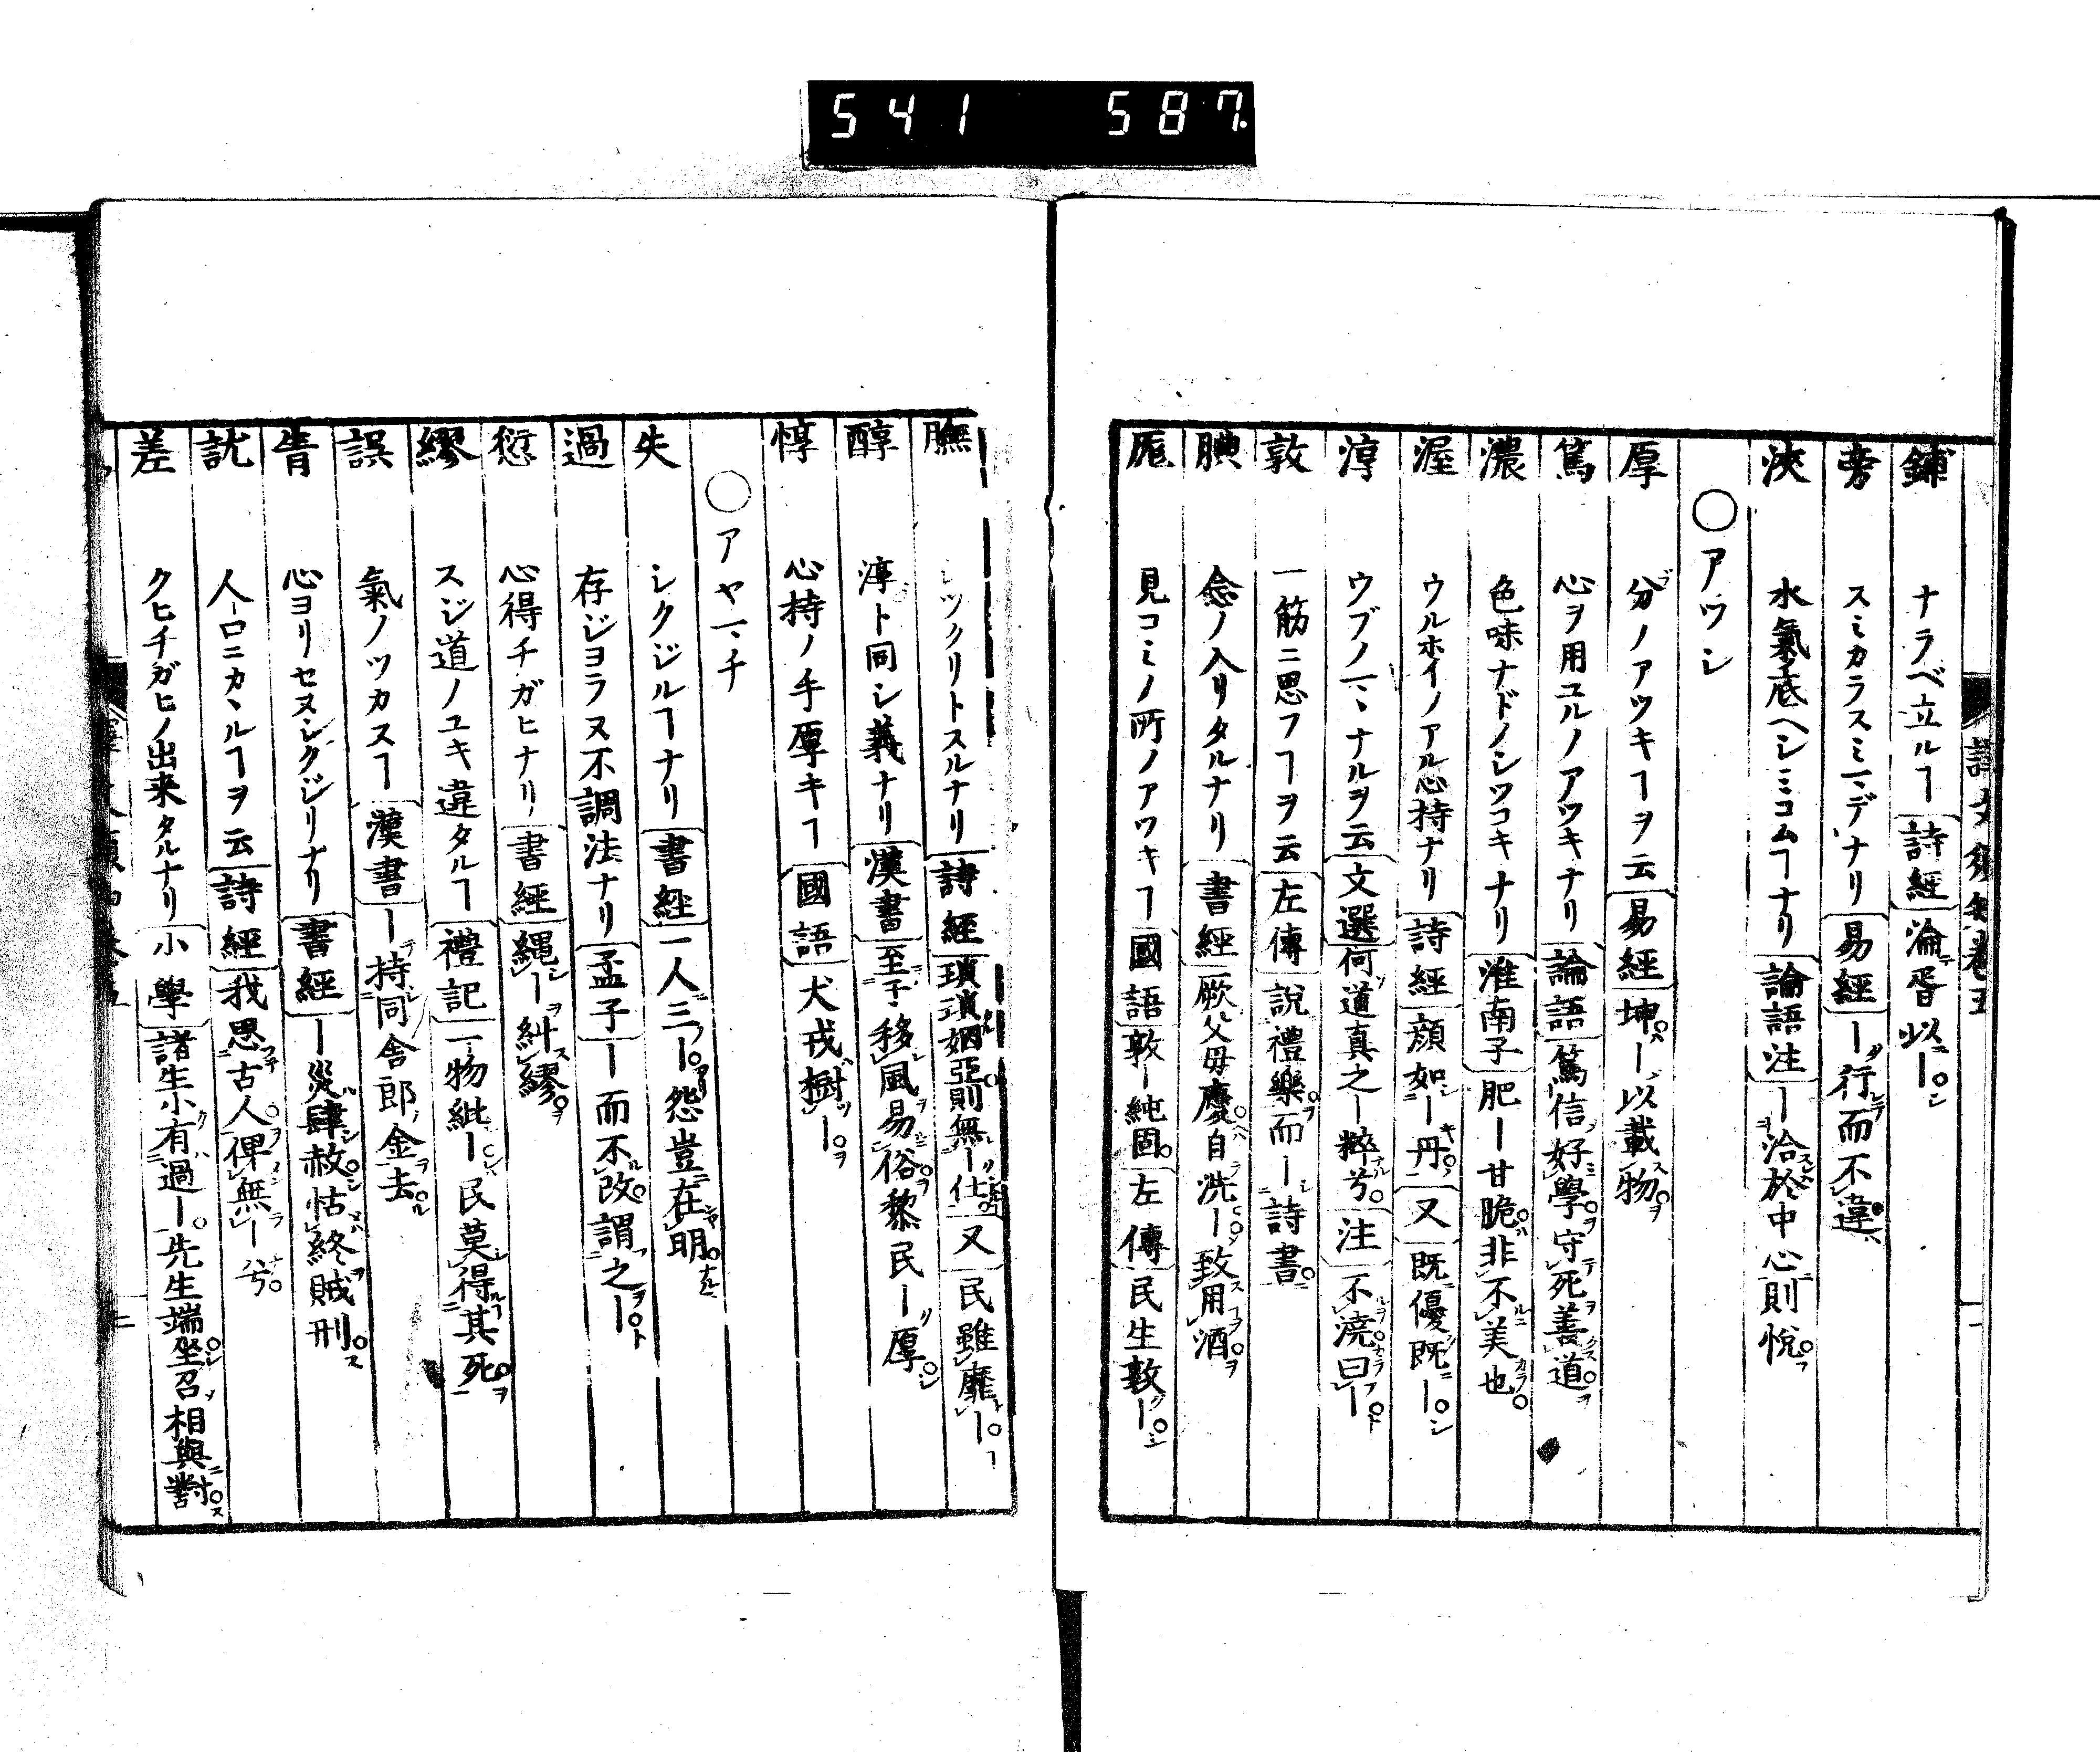 541 587
鋪 ナラベ立ルヿ 詩經 淪胥以ー
旁 スミカラスミマデナリ 易經 ー行而不違
浹 水氣ノ底ヘシミコムヿナリ 論語注 ー洽於中心則悅
○アツシ
厚 分ノアツキヿヲ云 易經 坤ー以載物
篤 心ヲ用ユルノアツキナリ 論語 篤信好學守死善道
濃 色味ナドノシツコキナリ 淮南子 肥ー甘脆非不美也
渥 ウルホイノアル心持ナリ 詩經 顔如ー丹 又 既優既ー
淳 ウブノマヽナルヲ云 文選 何道真之ー粹兮 注 不澆曰ー
敦 一筋ニ思フヿヲ云 左傳 說禮樂而ー詩書
腆 念ノ入リタルナリ 書經 厥父母慶自洗ー致用酒
厖 見コミノ所ノアツキヿ 國語 敦ー純固 左傳 民生敦ー
膴 シツクリトスルナリ 詩經 瑣瑣姻亞則無ー仕 又 民雖靡ー
醇 淳ト同シ義ナリ 漢書 至于移風易俗黎民ー厚
惇 心持ノ手厚キヿ 國語 犬戎樹ー
○アヤマチ
失 シクジルヿナリ 書經 一人三ー怨豈在明
過 存ジヨラヌ不調法ナリ 孟子 ー而不改謂之ー
愆 心得チガヒナリ 書經 繩ー糾繆
繆 スジ道ノユキ違タルヿ 禮記 一物紕ー民莫得其死
誤 氣ノツカスヿ 漢書 ー持同舍郎金去
眚 心ヨリセヌシクジリナリ 書經 ー災肆赦怙終賊刑
訧 人ノ口ニカヽルヿヲ云 詩經 我思古人俾無ー兮
差 クヒチガヒノ出来タルナリ 小學 諸生小有過ー先生端坐召相與對